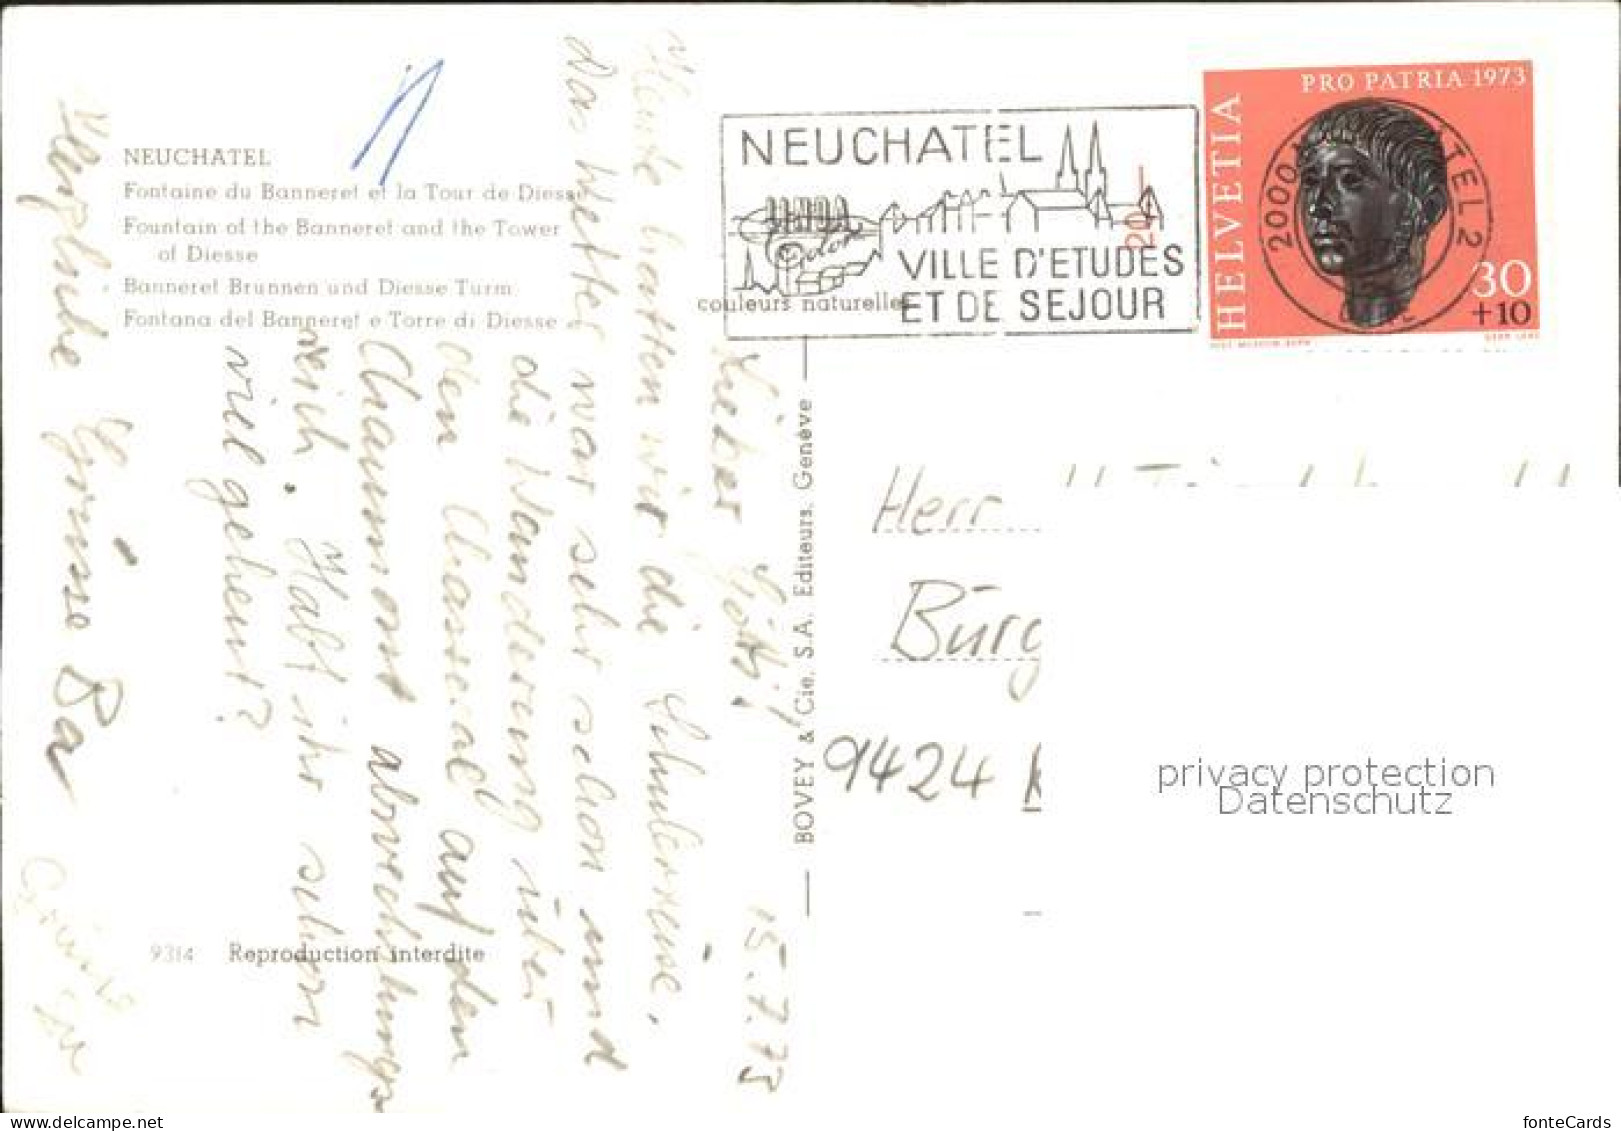 NEUCHATEL
Fontaine du Banneret et la Tour de Diesse
Fountain of the Banneret and the Tower
of Diesse
Banneret Brunnen und Diesse Turm
Fontana del Banneret e Torre di Diesse
15.7.73
Lieber Götti!
Heute hatten wir die Schulerreise,
Das Wetter war sehr schön und
die Wanderung über
den Chasseral auf den
Chaumont abwechslungs
reich. Habt ihr schon
viel geheut?
Herzliche Grüsse
9314 Reproduction interdite
BOVEY & Cie, S.A. Editeurs, Genève
couleurs naturelles
NEUCHATEL
VILLE D'ETUDES
ET DE SEJOUR
HELVETIA
PRO PATRIA 1973
30
+10
2000
TEL 2
Herr
Bürg
9424
privacy protection
Datenschutz
www.delcampe.net
fonteCards